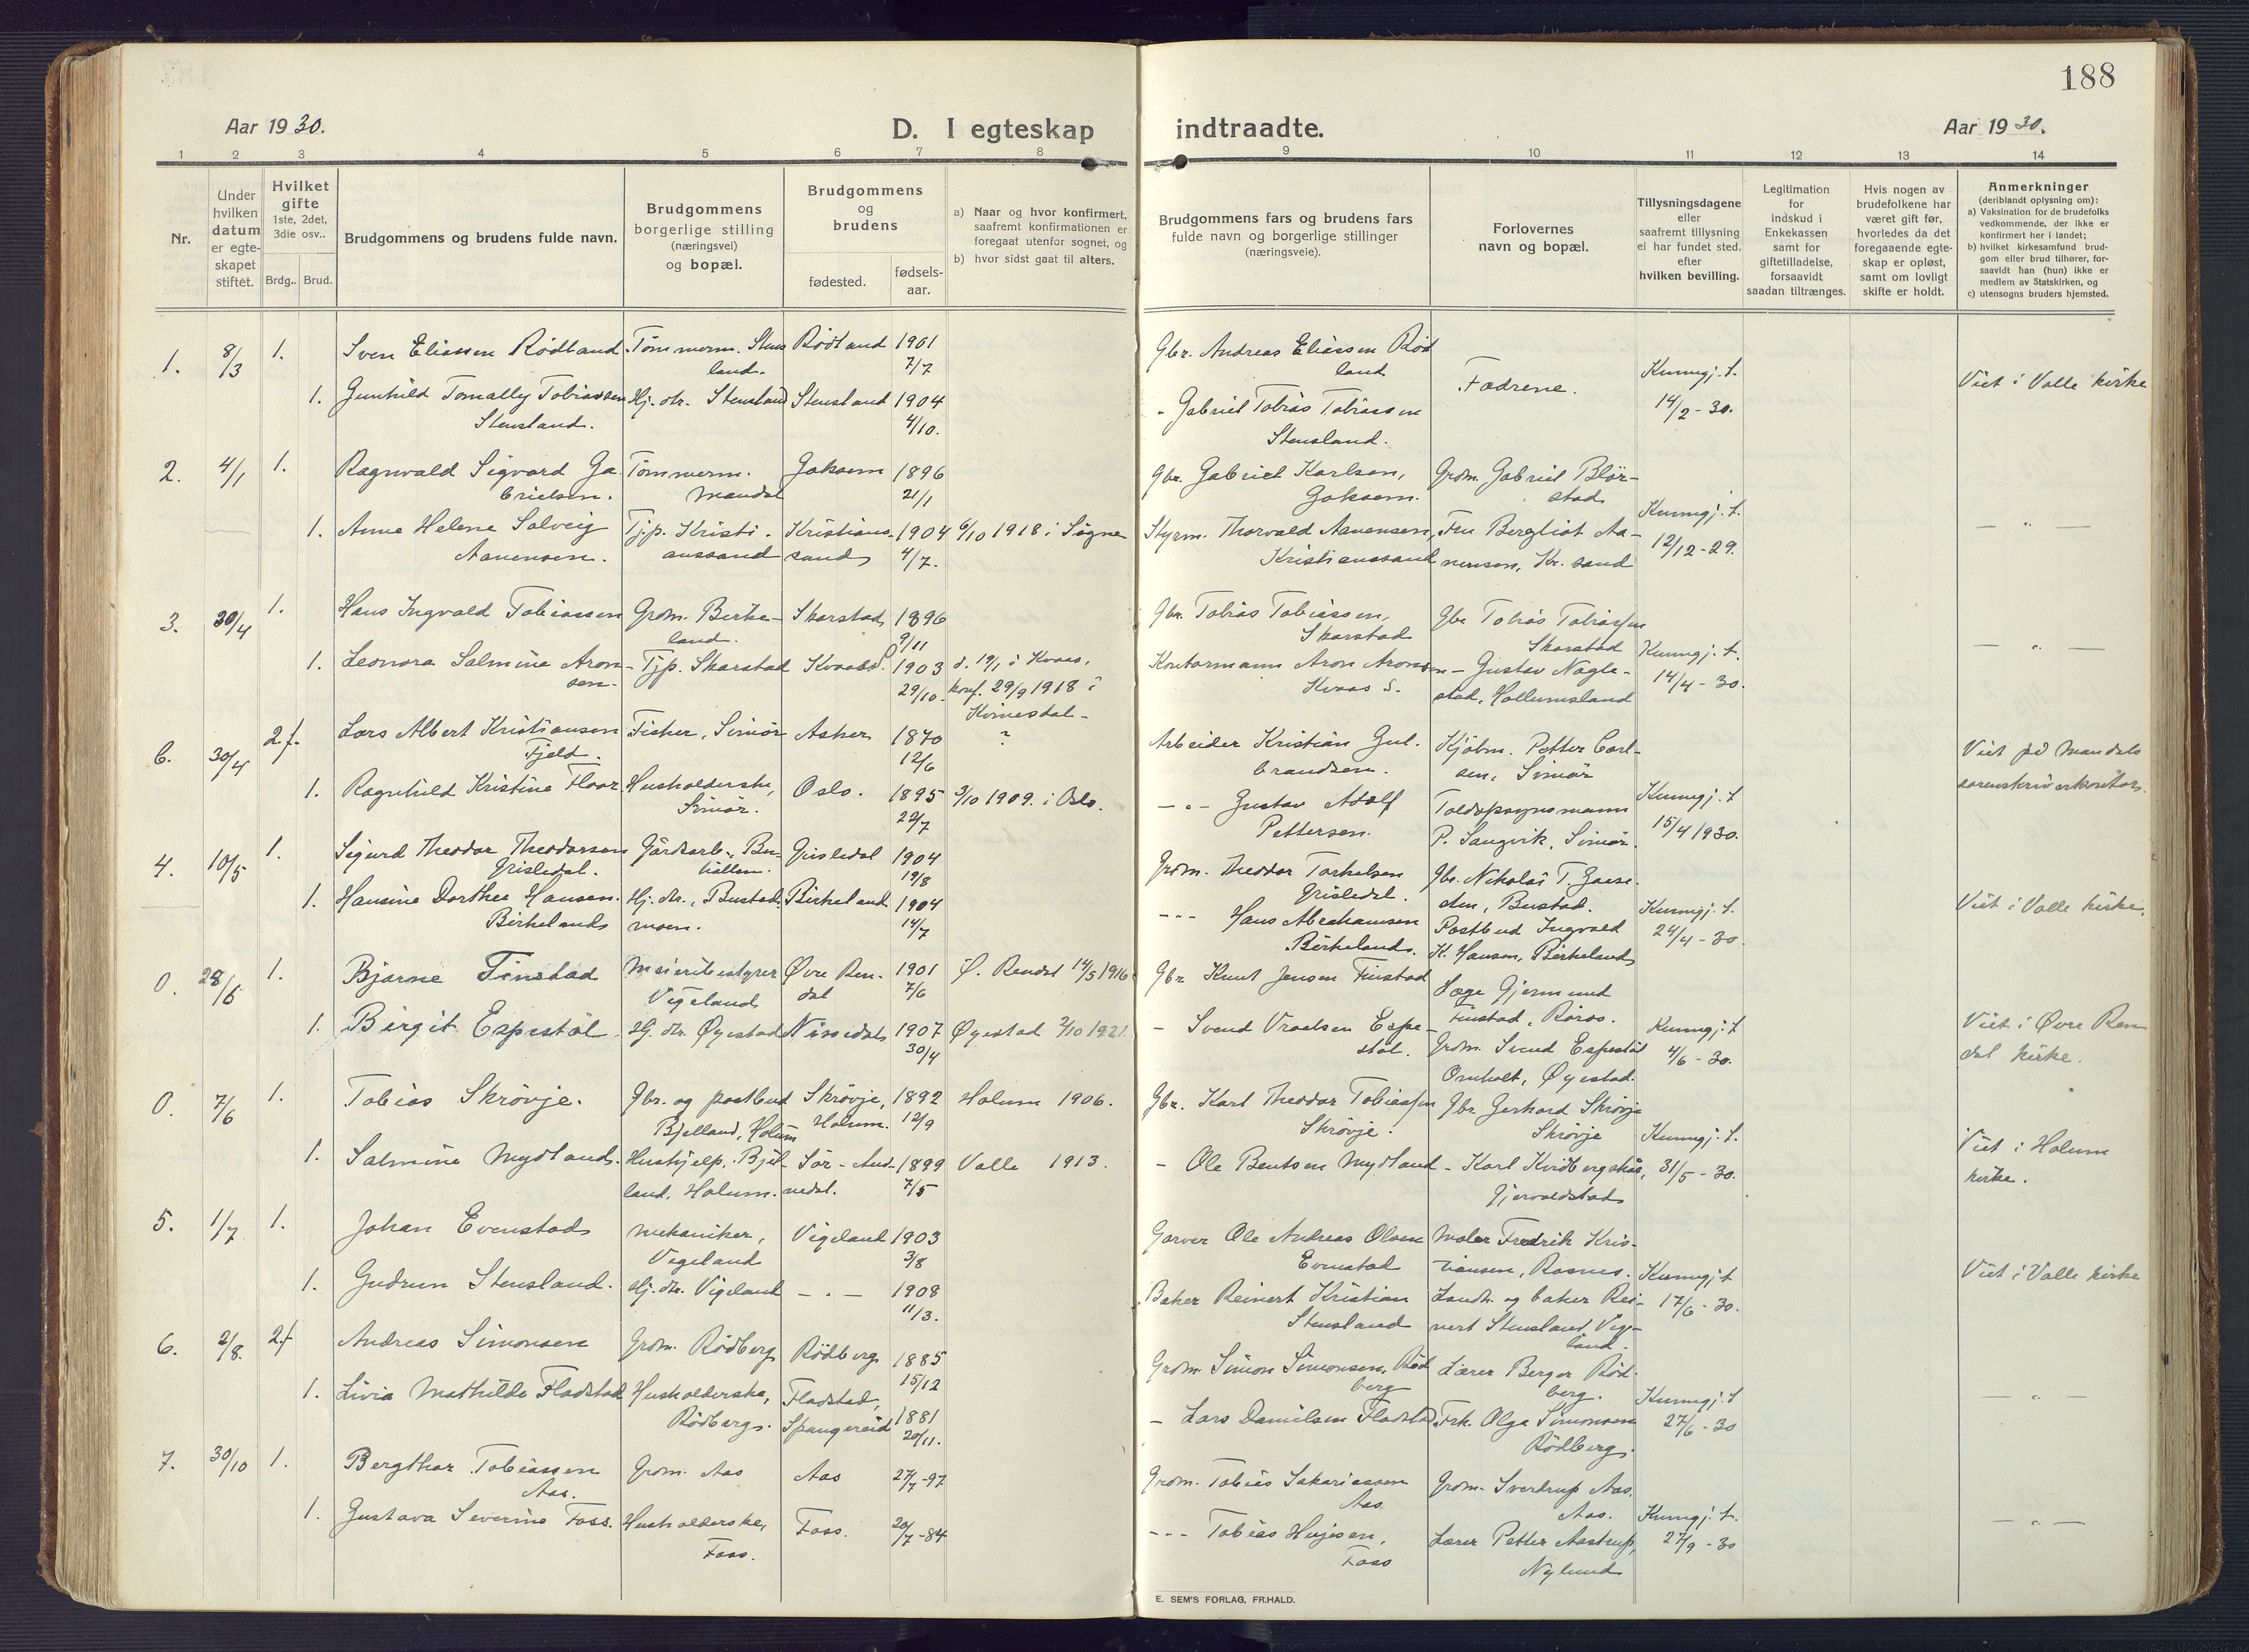 188
Aar 1930.
D. I egteskap indtraadte.
Aar 1930.
1 2 3 4 5 6 7 8 9 10 11 12 13 14
Nr.
Under
hvilken
datum
er egte-
skapet
stiftet.
Hvilket
gifte
1ste, 2det,
3die osv..
Brdg.. Brud.
Brudgommens og brudens fulde navn.
Brudgommens
borgerlige stilling
(næringsvei)
og bopæl.
Brudgommens
og
brudens
fødested.
fødsels-
aar.
a) Naar og hvor konfirmert,
saafremt konfirmationen er
foregaat utenfor sognet, og
b) hvor sidst gaat til alters.
Brudgommens fars og brudens fars
fulde navn og borgerlige stillinger
(næringsveie).
Forlovernes
navn og bopæl.
Tillysningsdagene
eller
saafremt tillysning
ei har fundet sted,
efter
hvilken bevilling.
Legitimation
for
indskud i
Enkekassen
samt for
giftetilladelse,
forsaavidt
saadan tiltrænges.
Hvis nogen av
brudefolkene har
været gift før,
hvorledes da det
foregaaende egte-
skap er opløst,
samt om lovligt
skifte er holdt.
Anmerkninger
(deriblandt oplysning om):
a) Vaksination for de brudefolks
vedkommende, der ikke er
konfirmert her i landet;
b) hvilket kirkesamfund brud-
gom eller brud tilhører, for-
saavidt han (hun) ikke er
medlem av Statskirken, og
c) utensogns bruders hjemsted.
1. 8/3 1. Sven Eliassen Rödland Tömmerm. Stens Rödland 1901 Gbr. Andreas Eliassen Röd
land. 7/7 land Fædrene. Kunngj. l. Viet i Valle kirke
1. Gunhild Tomally Tobiassen Hj. dtr. Stensland Stensland 1904 - Gabriel Tobias Tobiassen 14/2 - 30.
Stensland. 4/10. Stensland.
2. 4/1 1. Ragnvald Sigvard Ga- Tömmerm. 1896 Gbr. Gabriel Karlsen, Grdm. Gabriel
brielsen. Mandal 21/1 Kunngj. l.
1. Anne Helene Solveig Tj.p. Kristi- Kristians- 1904 6/10 1918 i Søgne Styrm. Thorvald Aanensen, Fru Bergliot Aa- 12/12 - 29. — " —
Aanensen. anssand sand 4/7. Kristianssand nensen, Kr. sand
3. 30/4 1. Hans Ingvald Tobiassen Grdm. Birke- Skarstad 1896 Gbr. Tobias Tobiassen, Gbr Tobias Tobiassen
land. 9/11 Skarstad Skarstad Kunngj. l. — " —
1. Leonora Salmine Aron- Tjp. Skarstad 1903 d. 19/1 i Kvaas, Kontormann Aron Aronsen - Gustav Nagle- 14/4 - 30.
sen. 29/10. konf. 29/9 1918 i Kvaas s. stad, Hollumsland
Kvinesdal
6. 30/4 2. f. Lars Albert Kristiansen Fisker, Svinör Asker 1870 ? Arbeider Kristian Gul- Kjöbm. Petter Carl- Viet på Mandals
Fjeld. 12/6 brandsen. sen, Svinör sorenskriverkontor.
1. Ragnhild Kristine Floor Husholderske, Oslo. 1895 3/10 1909. i Oslo. — " — Gustav Adolf Toldopsynsmann Kunngj. l
Svinör. 22/7 Pettersen. P. Sangvik, Svinör. 15/4 1930.
4. 10/5 1. Sigurd Theodor Theodorsen Gårdsarb., Grisledal 1904 Grdm. Theodor Torkelsen Gbr. Nikolai T.
Grisledal. 19/8 Grisledal. Bustad. Kunngj. l. Viet i Valle kirke.
1. Hansine Dorthea Hansen Hj. dtr., Bustad Birkeland 1904 - - - Hans Abrahamsen Postbud Ingvald 24/4 - 30.
Birkeland moen. 14/7 Birkeland. K. Hansen, Birkeland
0. 28/6 1. Bjarne Finstad Meieribestyrer Øvre Ren- 1901 Ø. Rendal 14/5 1916 Gbr Knut Jensen Finstad Læge Gjermund
Vigeland dal 7/6 Finstad, Röros.
1. Birgit Espestöl Hj. dtr. Øyestad Nissedal 1907 Øyestad 2/10 1921. - Svend Vraalsen Espe- Grdm. Svend Espestöl Kunngj. l Viet i Øvre Ren
30/4 stöl. Omholt, Øyestad. 4/6 - 30. dal kirke.
0. 7/6 1. Tobias Skrövje. Gbr. og postbud Skrövje, 1892 Holum 1906. Gbr. Karl Theodor Tobiassen Gbr. Gerhard Skrövje
Bjelland, Holum Holum. 12/9 Skrövje. Skrövje Kunngj. l. Viet i Holum
1. Salmine Mydland. Hushjelp, Bjel- Sör-Aud- 1899 Valle 1913. - Ole Bentsen Mydland - Karl Kvidbergskår, 31/5 - 30. kirke.
land, Holum. nedal. 7/5 Gjervoldstad
5. 1/7 1. Johan Evenstad Mekaniker, Vigeland 1903 Garver Ole Andreas Olsen Maler Fredrik Kris-
Vigeland 3/8 Evenstad tiansen, Rosnes. Kunngj. l Viet i Valle kirke
1. Gudrun Stensland. Hj. dtr. Vigeland — " — 1908 Baker Reinert Kristian Landh. og baker Rei- 17/6 - 30.
11/3. Stensland nert Stensland, Vige-
land.
6. 2/8. 2. f Andreas Simonsen Grdm. Rödberg Rödberg 1885 Grdm Simon Simonsen, Röd Lærer Berger Röd-
15/12 berg berg. Kunngj. l — " —
1. Livia Mathilde Fladstad Husholderske, Fladstad, 1881 - Lars Danielsen Fladstad Frk. Olga Simonsen 27/6 - 30
Rödberg. Spangereid 20/11. Rödberg.
7. 30/10 1. Bergthor Tobiassen Grdm. Aas Aas 27/7 - 97 Grdm. Tobias Sakariassen Grdm. Sverdrup Aas.
Aas. Aas. Aas. Kunngj. l. — " —
1. Gustava Severine Foss. Husholderske, Foss. 20/7 - 84 - - - Tobias Foss Lærer Petter Aastrup, 27/9 - 30
Foss. Nylund
E. SEM'S FORLAG, FR.HALD.